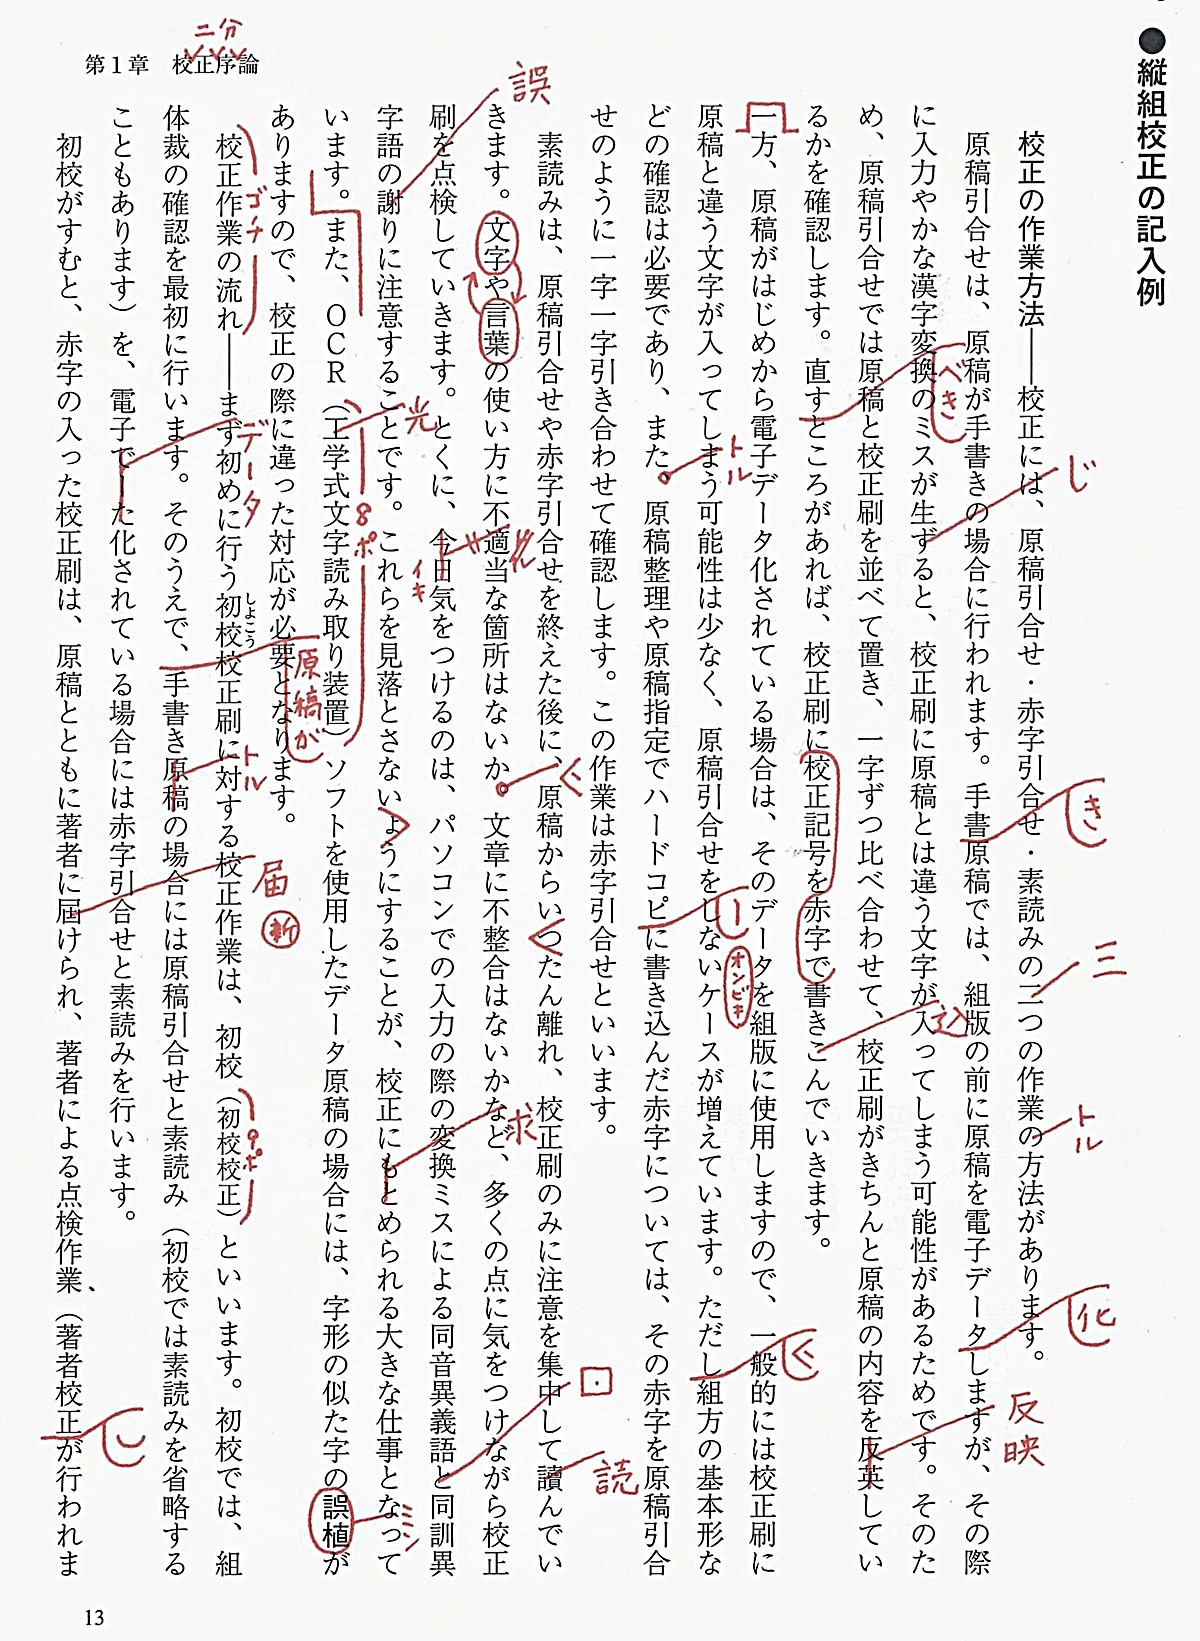 ●縦組校正の記入例
校正の作業方法――校正には、原稿引合せ・赤字引合せ・素読みの二つの作業の方法があります。
原稿引合せは、原稿が手書きの場合に行われます。手書原稿では、組版の前に原稿を電子データしますが、その際
に入力やかな漢字変換のミスが生ずると、校正刷に原稿とは違う文字が入ってしまう可能性があるためです。そのた
め、原稿引合せでは原稿と校正刷を並べて置き、一字ずつ比べ合わせて、校正刷がきちんと原稿の内容を反英してい
るかを確認します。直すところがあれば、校正刷に校正記号を赤字で書きこんでいきます。
一方、原稿がはじめから電子データ化されている場合は、そのデータを組版に使用しますので、一般的には校正刷に
原稿と違う文字が入ってしまう可能性は少なく、原稿引合せをしないケースが増えています。ただし組方の基本形な
どの確認は必要であり、また。原稿整理や原稿指定でハードコピに書き込んだ赤字については、その赤字を原稿引合
せのように一字一字引き合わせて確認します。この作業は赤字引合せといいます。
素読みは、原稿引合せや赤字引合せを終えた後に、原稿からいつたん離れ、校正刷のみに注意を集中して讀んでい
きます。文字や言葉の使い方に不適当な箇所はないか。文章に不整合はないかなど、多くの点に気をつけながら校正
刷を点検していきます。とくに、今日気をつけるのは、パソコンでの入力の際の変換ミスによる同音異義語と同訓異
字語の謝りに注意することです。これらを見落とさないょうにすることが、校正にもとめられる大きな仕事となって
います。また、OCR（工学式文字読み取り装置）ソフトを使用したデータ原稿の場合には、字形の似た字の誤植が
ありますので、校正の際に違った対応が必要となります。
校正作業の流れ――まず初めに行う初校校正刷に対する校正作業は、初校（初校校正）といいます。初校では、組
しょこう
体裁の確認を最初に行います。そのうえで、手書き原稿の場合には原稿引合せと素読み（初校では素読みを省略する
こともあります）を、電子でーた化されている場合には赤字引合せと素読みを行います。
初校がすむと、赤字の入った校正刷は、原稿とともに著者に届けられ、著者による点検作業、（著者校正が行われま
第1章　校正序論
13
二分
誤
べき
じ
き
三
トル
化
反映
込
トル
ー
オンビキ
読
求
光
8ポ
イキ
ミン
原稿が
ゴチ
データ
トル
届
新
9ポ